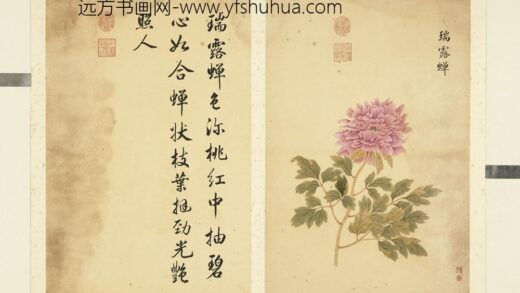 远方书画网-www.yfshuhua.com
瑞露蝉
瑞露蝉色深桃红中抽碧
心如合蝉状枝葉挺劲光艷
照人